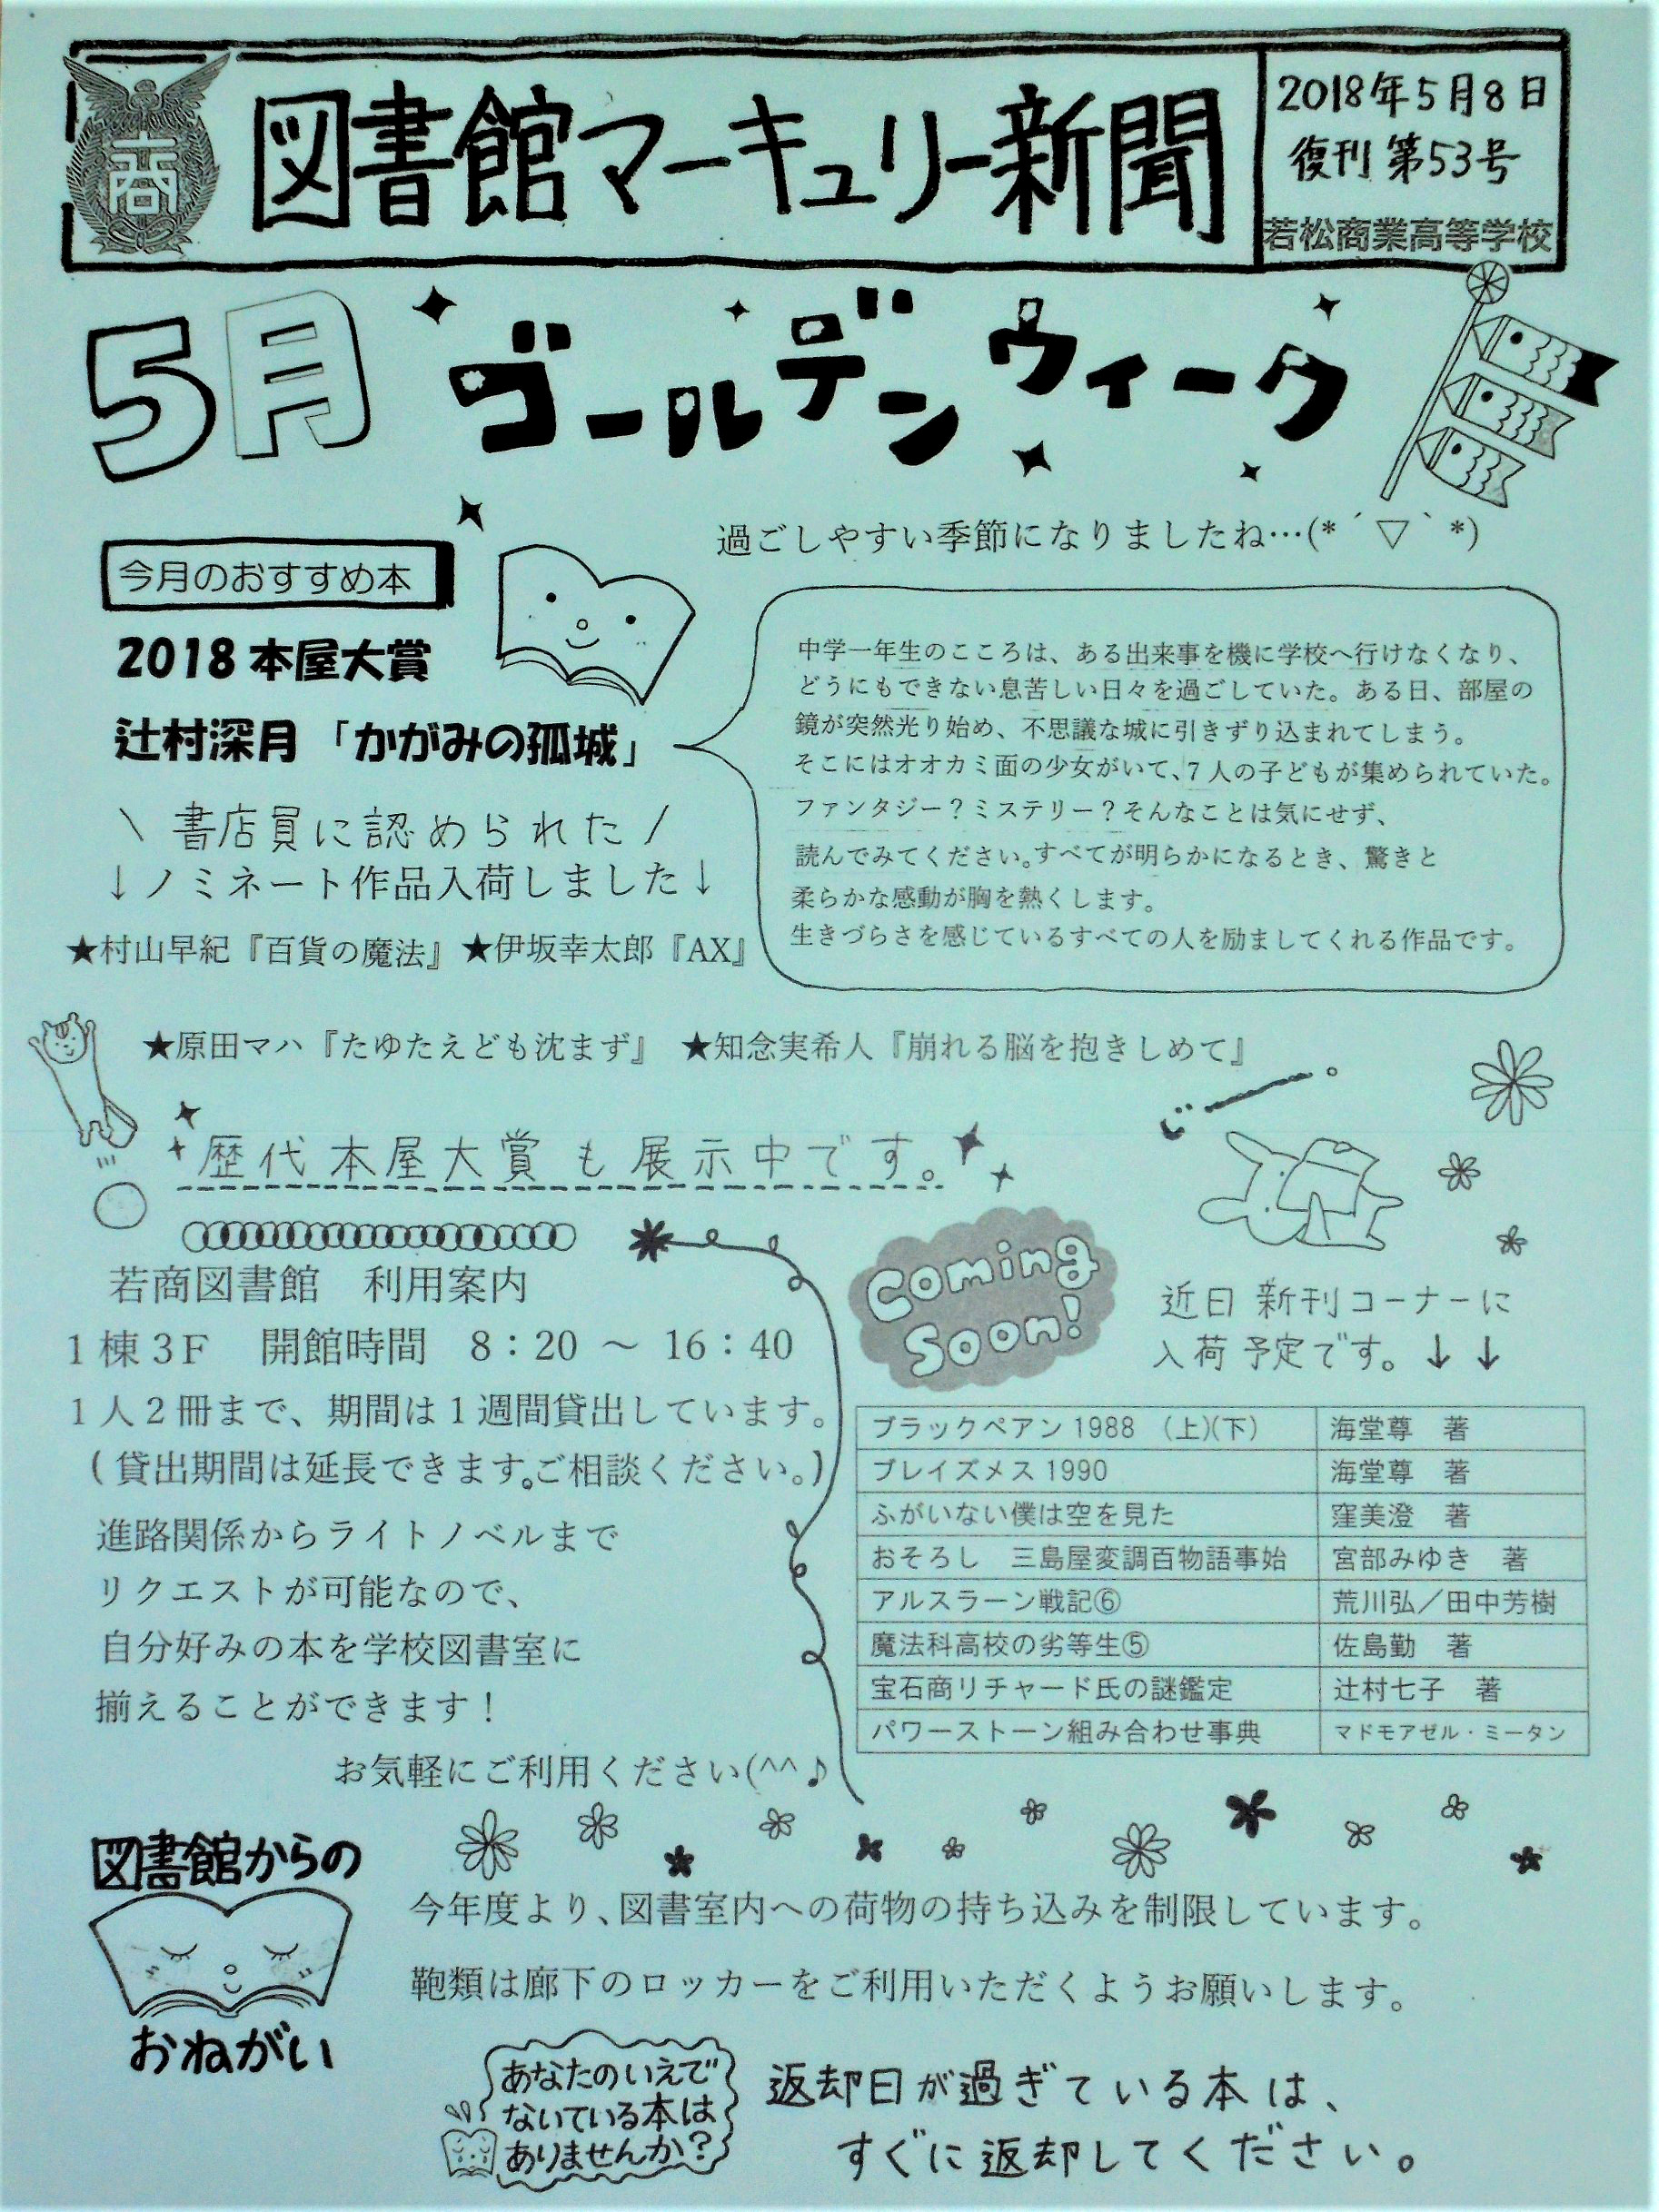 商
図書館マーキュリー新聞
2018年5月8日
復刊 第53号
若松商業高等学校
5月 ゴールデンウィーク
過ごしやすい季節になりましたね…(*´▽｀*)
今月のおすすめ本
2018 本屋大賞
辻村深月「かがみの孤城」
＼ 書店員に認められた ／
↓ノミネート作品入荷しました↓
中学一年生のこころは、ある出来事を機に学校へ行けなくなり、
どうにもできない息苦しい日々を過ごしていた。ある日、部屋の
鏡が突然光り始め、不思議な城に引きずり込まれてしまう。
そこにはオオカミ面の少女がいて、7人の子どもが集められていた。
ファンタジー？ミステリー？そんなことは気にせず、
読んでみてください。すべてが明らかになるとき、驚きと
柔らかな感動が胸を熱くします。
生きづらさを感じているすべての人を励ましてくれる作品です。
★村山早紀『百貨の魔法』★伊坂幸太郎『AX』
★原田マハ『たゆたえども沈まず』 ★知念実希人『崩れる脳を抱きしめて』
歴代本屋大賞も展示中です。
若商図書館　利用案内
1棟3F　開館時間　8：20 ～ 16：40
1人2冊まで、期間は1週間貸出しています。
(貸出期間は延長できます。ご相談ください。)
進路関係からライトノベルまで
リクエストが可能なので、
自分好みの本を学校図書室に
揃えることができます！
お気軽にご利用ください(^^♪
Coming
Soon!
近日 新刊コーナーに
入荷予定です。↓↓
ブラックペアン1988　(上)(下)　海堂尊　著
ブレイズメス1990　海堂尊　著
ふがいない僕は空を見た　窪美澄　著
おそろし　三島屋変調百物語事始　宮部みゆき　著
アルスラーン戦記⑥　荒川弘／田中芳樹
魔法科高校の劣等生⑤　佐島勤　著
宝石商リチャード氏の謎鑑定　辻村七子　著
パワーストーン組み合わせ事典　マドモアゼル・ミータン
図書館からの
おねがい
今年度より、図書室内への荷物の持ち込みを制限しています。
鞄類は廊下のロッカーをご利用いただくようお願いします。
あなたのいえで
ないている本は
ありませんか？
返却日が過ぎている本は、
すぐに返却してください。